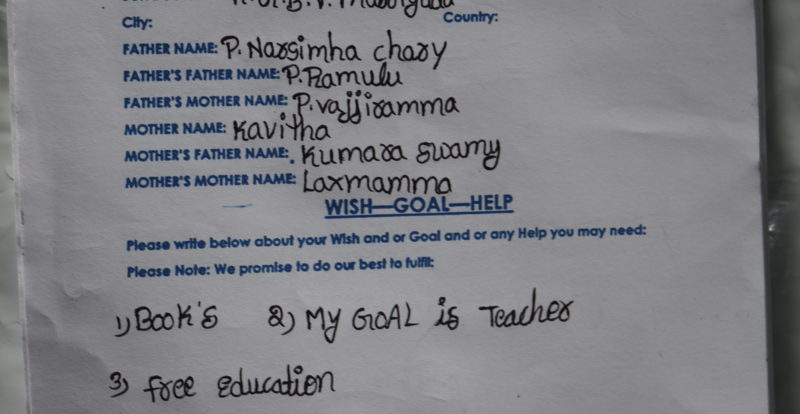 City: Country:
FATHER NAME: P. Narsimha chary
FATHER'S FATHER NAME: P. Ramulu
FATHER'S MOTHER NAME: P. vajjiramma
MOTHER NAME: Kavitha
MOTHER'S FATHER NAME: Kumara swamy
MOTHER'S MOTHER NAME: Laxmamma
WISH—GOAL—HELP
Please write below about your Wish and or Goal and or any Help you may need:
Please Note: We promise to do our best to fulfil:
1) Book's 2) My GOAL is Teacher
3) free education